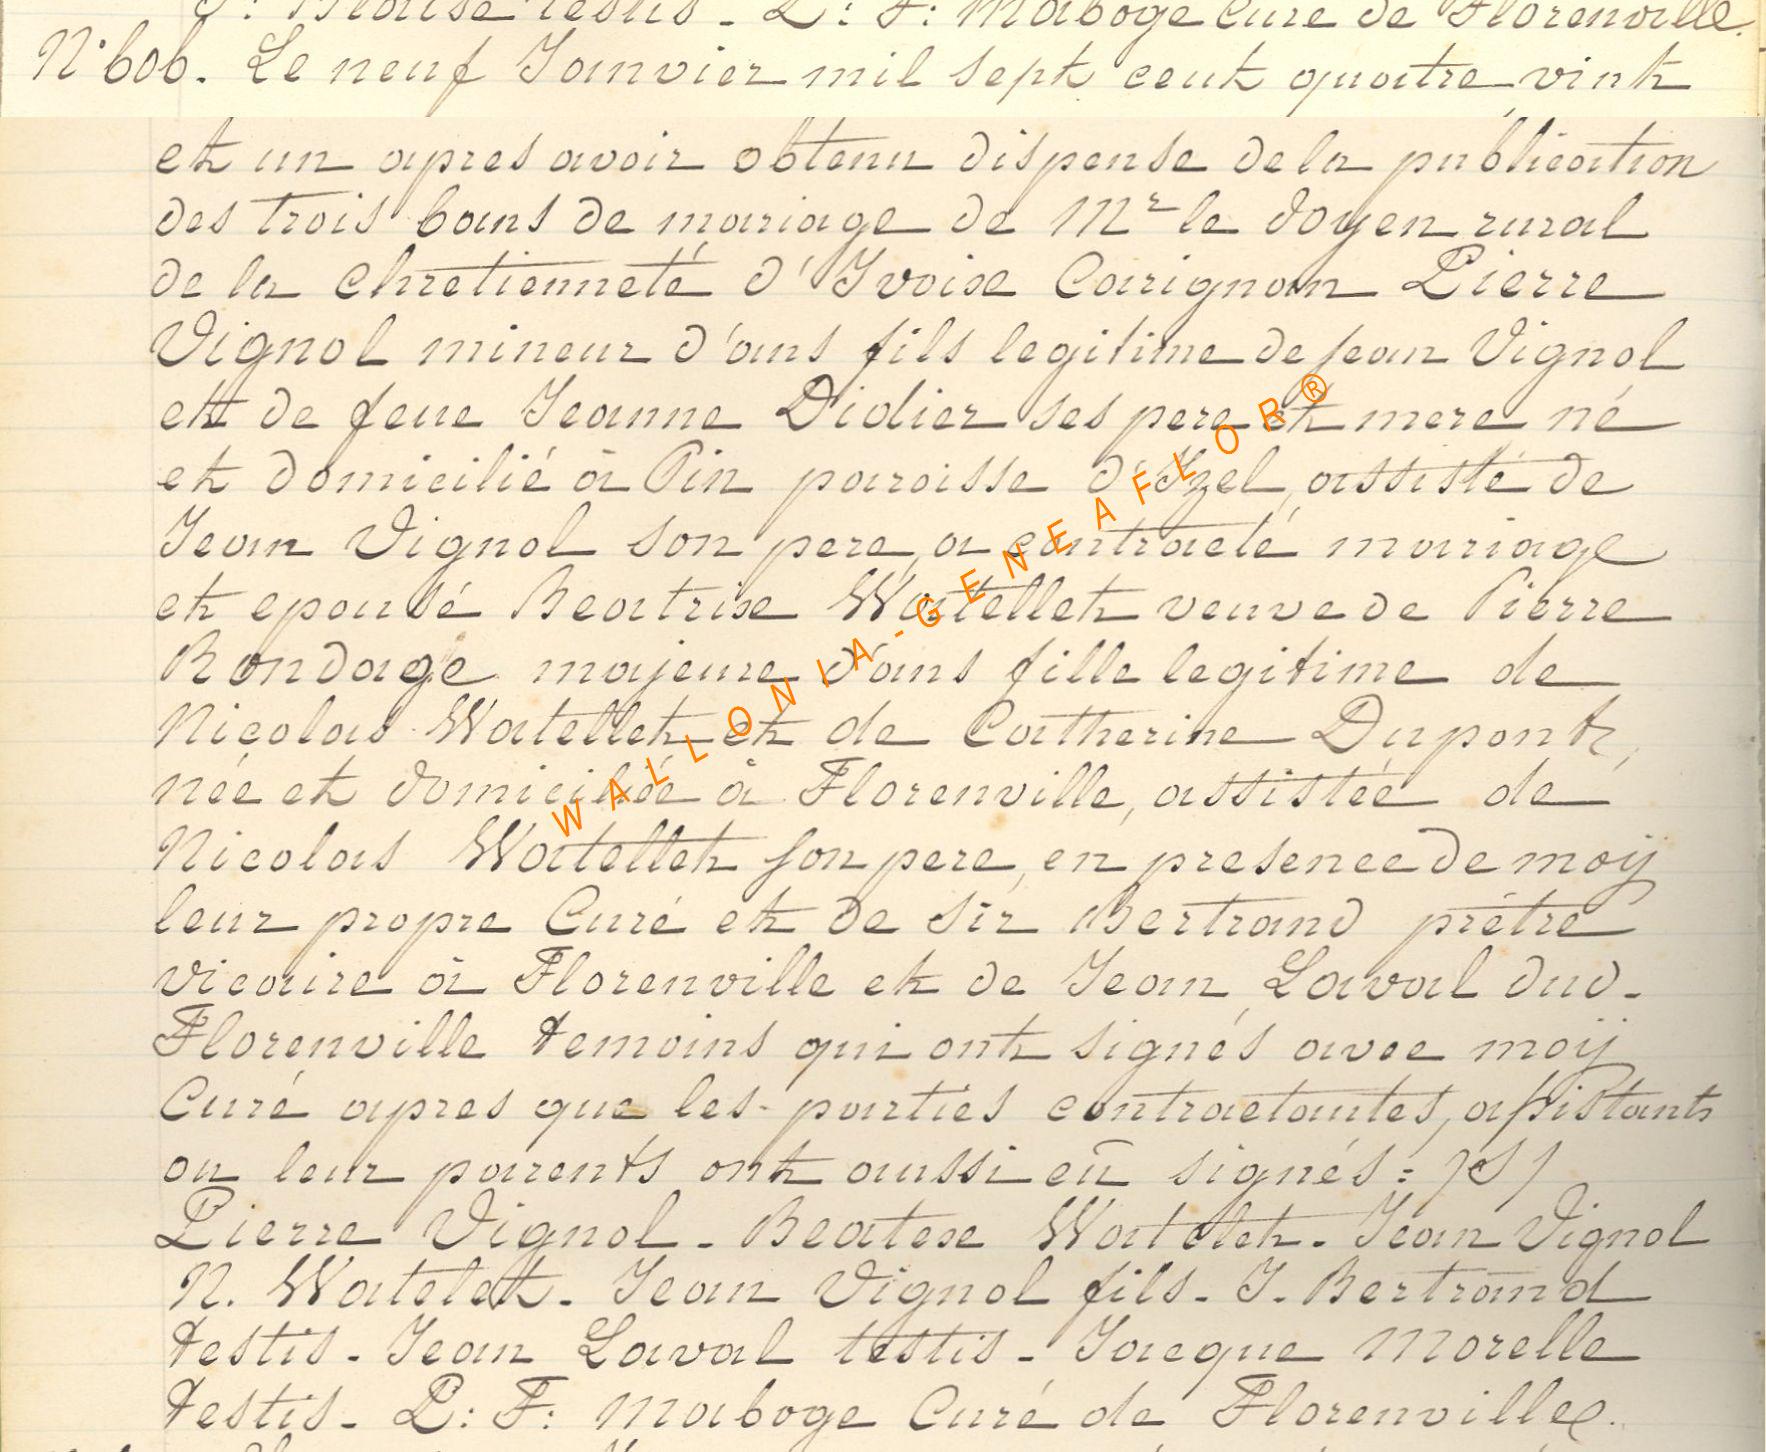 J: Blaise testis - L: F: Maboge Curé de Florenville.
N° 606. Le neuf Janvier mil sept cent quatre vint
et un apres avoir obtenu dispense de la publication
des trois bans de mariage de Mr le doyen rural
de la chretienneté d'Ivoise Carignan Pierre
Vignol mineur d'ans fils legitime de Jean Vignol
et de feue Jeanne Didier ses pere et mere né
et domicilié à Pin paroisse d'Izel, assisté de
Jean Vignol son pere, a contracté mariage
et epousé Beatrise Watellet veuve de Pierre
Rondage majeure d'ans fille legitime de
Nicolas Watellet et de Catherine Dupont,
née et domiciliée à Florenville, assistée de
Nicolas Watellet son pere, en presence de moÿ
leur propre Curé et de Sir Bertrand prétre
vicaire à Florenville et de Jean Laval dud.
Florenville temoins qui ont signés avec moÿ
Curé apres que les parties contractantes, assistants
ou leur parents ont aussi eu signés : /S/
Pierre Vignol - Beatese Watelet - Jean Vignol
N. Watelet - Jean Vignol fils - J. Bertrand
testis - Jean Laval testis - Jacque Morelle
testis - L: F: Maboge Curé de Florenville.
WALLONIA-GENEAFLOR®